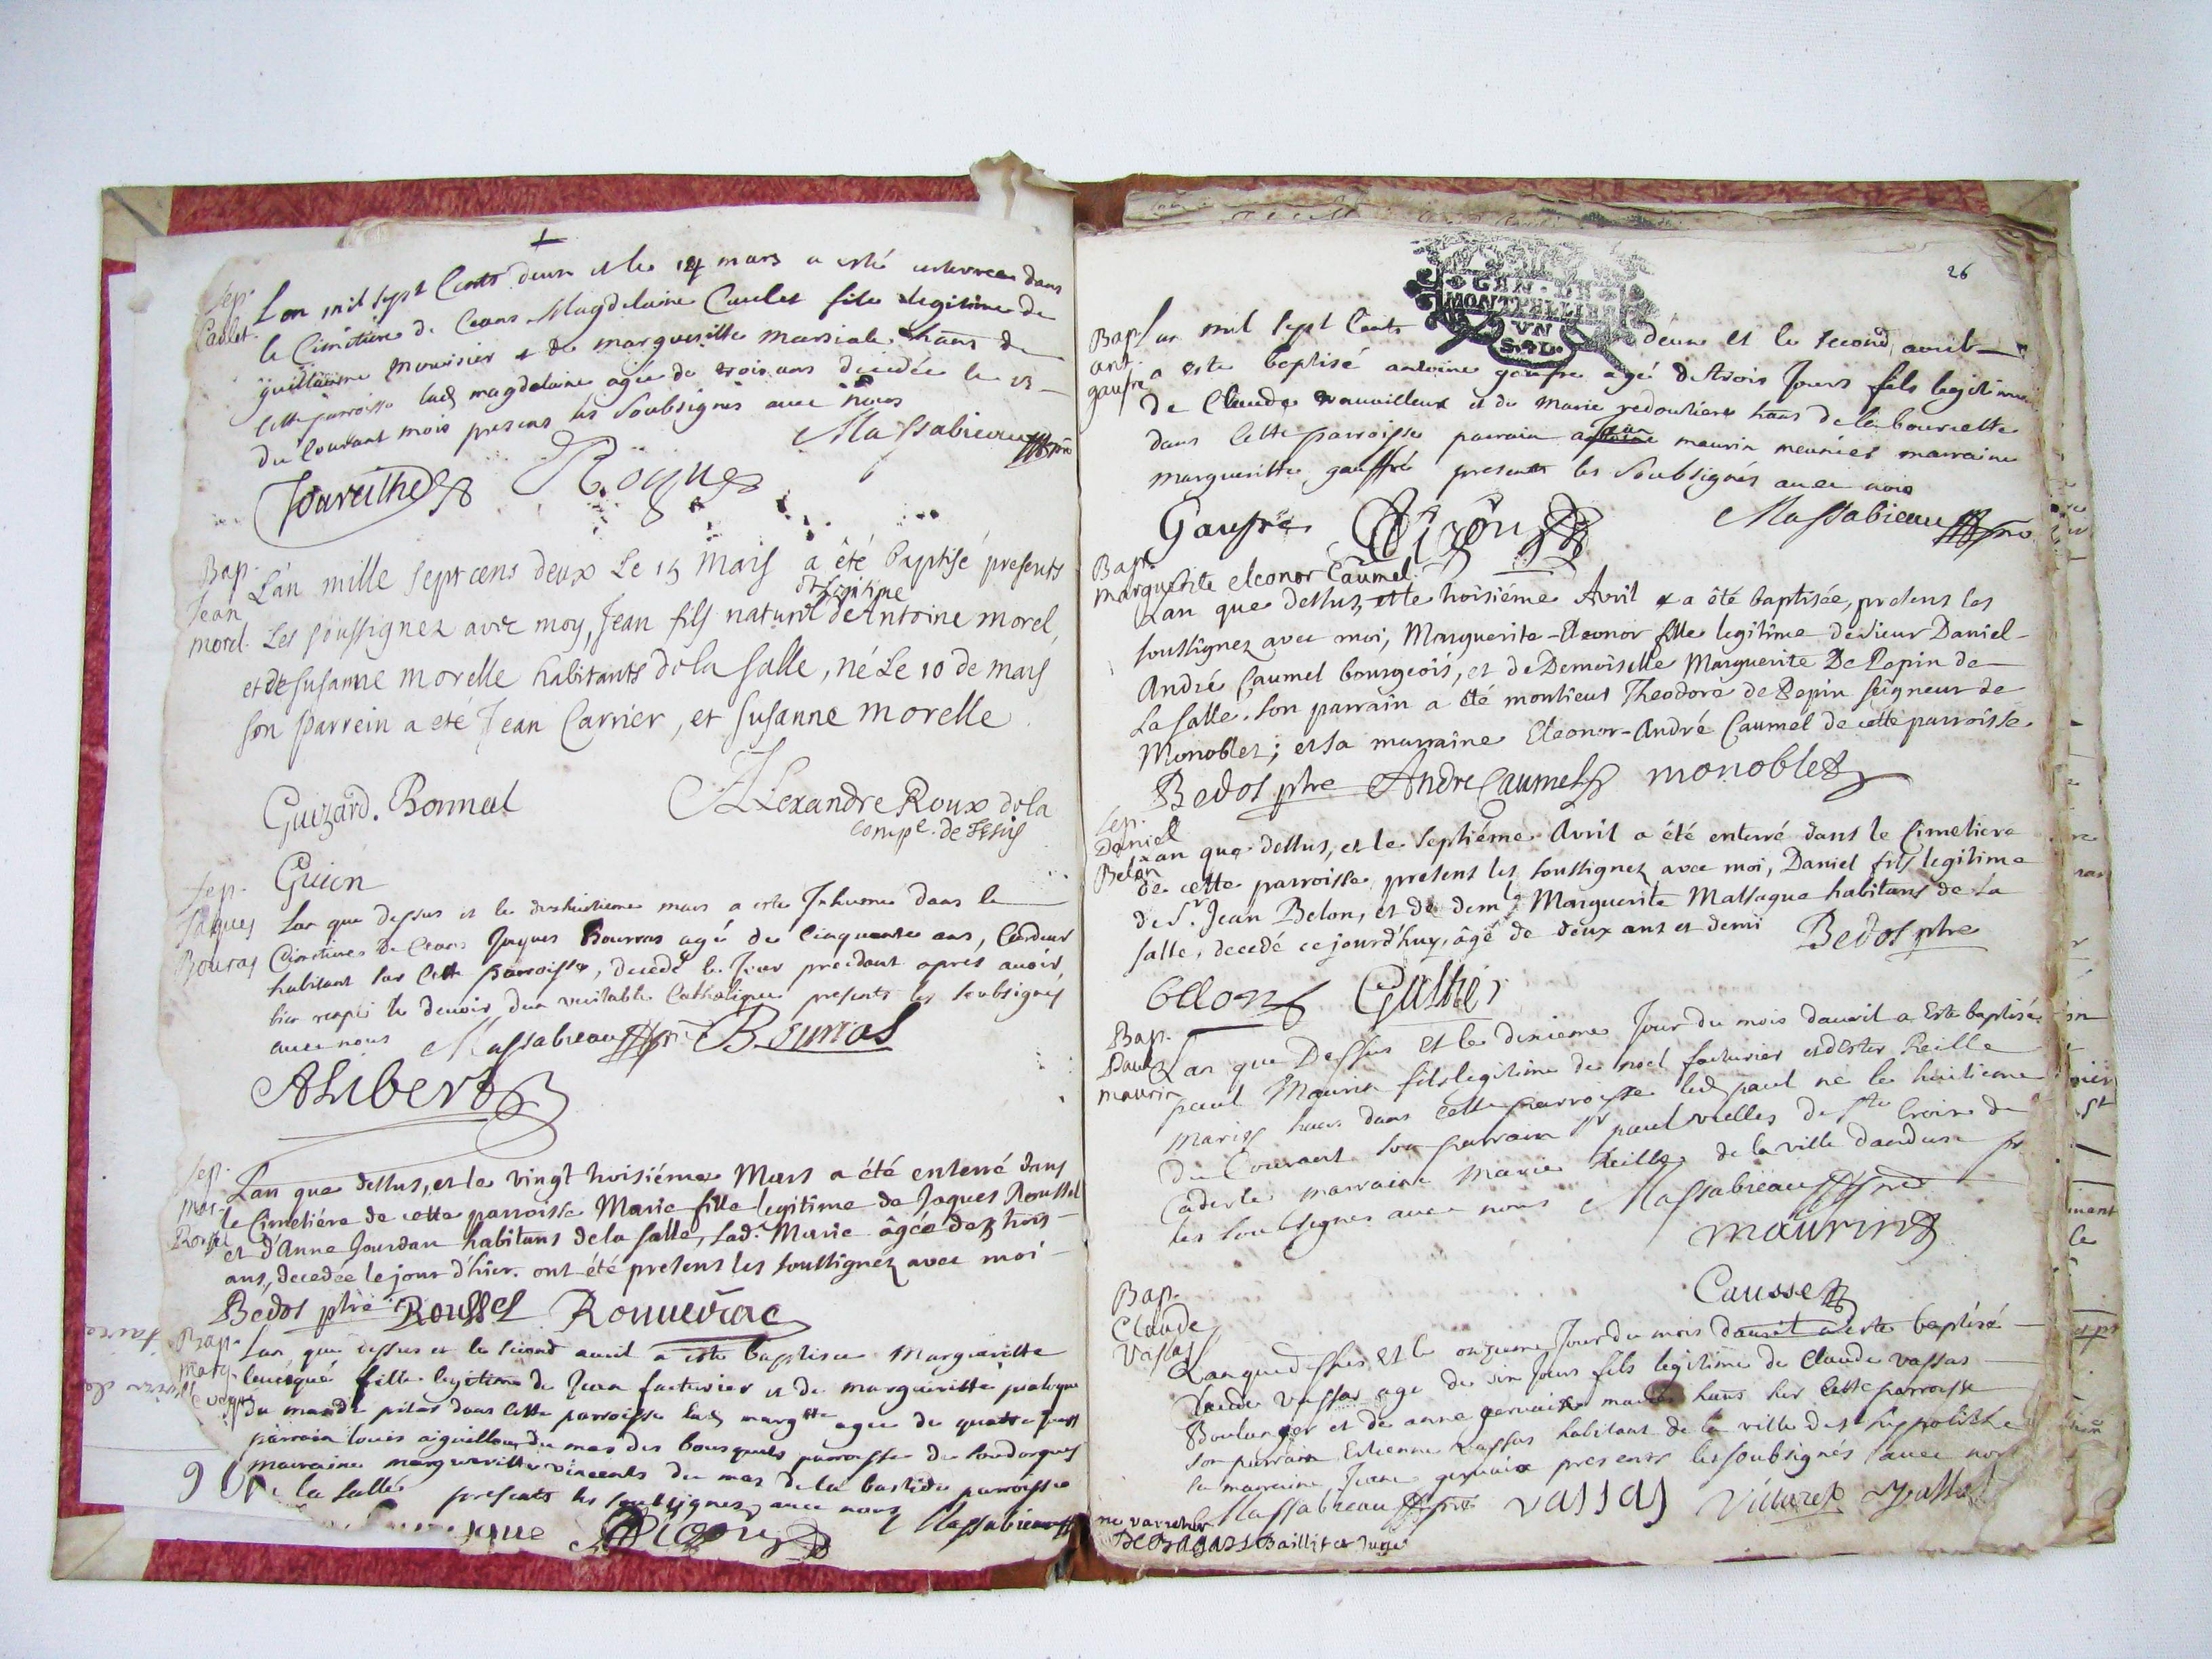 Sep.
Caulet
L'an mil sept Cents deux et le 14 mars a esté enterrée dans
le Cimetiere de Ceans Magdelaine Caulet fille legitime de
guillaume monisier et de margueritte marsiale haans de
cette parroisse lad magdelaine agée de trois ans decedée le 13
du Courant mois presens les Soubsignés avec nous
Massabieau
Toureille Rogues
Bap.
Jean
morel.
L'án mille sept cens deux Le 15 Mars a été baptisé presents
et legitime
Les soussignez avec moy, Jean fils naturel de Antoine morel,
et de Susanne morelle habitants de la Salle, né Le 10 de mars
son parrein a eté Jean Carrier, et Susanne morelle
Guizard. Bonnal
Alexandre Roux de la
comp.e de Jesus
Guion
Sep.
Jaques
Bouras
Lan que dessus et le dixhuitieme mars a este Inhumé dans le
Cimetiere de Ceans Jaques Bourras agé de Cinquante ans, Cardeur
habitant sur Cette parroisse, decedé le Jour precedant apres avoir
bien rempli le devoir dun veritable Catholique presents les soubsignés
avec nous Massabieau Bourras
Alibert
Sep.
mar.
Rousel
L'an que dessus, et le vingt troisiéme Mars a été enterré dans
le Cimetiére de cette parroisse Marie fille legitime de Jaques Roussel
et d'Anne Jourdan habitans de la Salle, Lad. Marie âgée de trois
ans, decedée le jour d'hier. ont été presens les soussignez avec moi
Bedos ptre Roussel
Bap.
marg.
Lan que dessus et le second avril a esté baptisée Margueritte
levésque fille legitime de Jean facturier et de margueritte
du masde pilas dans cette parroisse lad margtte agée de quatre jours
parrain louis aiguillon du mas des bousquets parroisse de Soudorgues
marraine margueritte vincents du mas de la bastide parroisse
de la Salle presents les soubsignez avec nous Massabieau
26
GEN. DE
MONTPELLIER
VN
SOL.
Bap.
ant.
gaufre
Lan mil sept Cents deux et le second avril
a este baptisé antoine gaufre agé de trois Jours fils legitime
de Claude travailleur et de Marie redoutiere haans de la bourcette
Jean
dans Cette parroisse parrain antoine maurin meunier marraine
margueritte gauffré presents les Soubsignés avec nous
Massabieau
Gaufre
Bapt.
marguerite eleonor Caumel.
L'an que dessus, et le troisiéme Avril a été baptisée, presens les
soussignez avec moi, Marguerite-Eleonor fille legitime de Sieur Daniel-
André Caumel bourgeois, et de Demoiselle Marguerite De Pepin de
La Salle. Son parrain a été monsieur Theodore de Pepin seigneur de
Monoblet; et sa marraine Eleonor-André Caumel de cette parroisse.
Bedos ptre Andre Caumel monoblet
Sep.
Daniel
Belon
L'an que dessus, et le septiéme Avril a été enterré dans le Cimetiere
de cette parroisse, presens les soussignez avec moi, Daniel fils legitime
de Sr. Jean Belon, et de demle Marguerite Massaque habitans de La
Salle, decedé ce jourd'huy, âgé de deux ans et demi Bedos ptre
belon
Bap.
Paul
maurin
Lan que Dessus et le dixieme Jour du mois davril a Este baptisé
paul Maurin fils legitime de noel facturier et dEster Reille
mariés haans dans cette parroisse led paul né le huitieme
du Courant son parrain Sr paul vielles de Ste Croix de
Caderle marraine Marie Reille de la ville danduse pr
les soubsignes avec nous Massabieau
maurin
Causse
Bap.
Claude
Vassas
Lan que dessus et le onzieme Jour du mois davril a este baptisé
Claude Vassas agé de six Jours fils legitime de Claude vassas
Boulanger et de anne gervaise mariés haans sur Cette parroisse
son parrain Estienne Vassas habitant de la ville de St hippolithe
la marraine Jeane gervaise presents les soubsignés avec nous
Massabieau vassas
ne varietur
Bailli et Juge